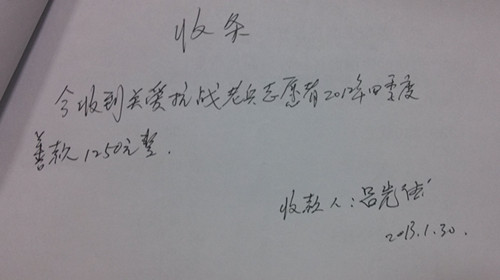 收条
今收到关爱抗战老兵志愿者2012年四季度
善款1250元整.
收款人:吕光
2013.1.30.